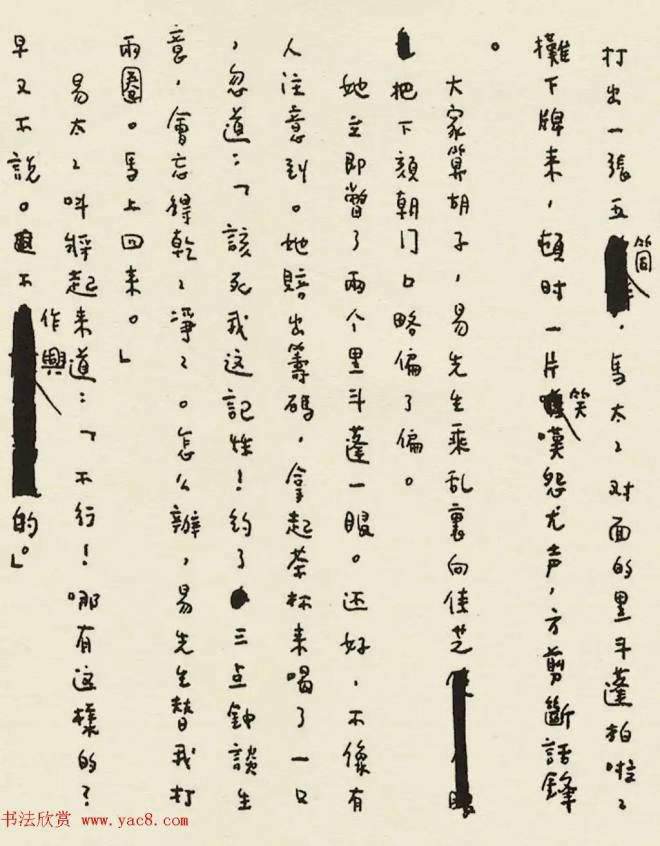 打出一張五筒，馬太〻对面的黑斗蓬拍啦〻
攤下牌来，頓时一片笑嘆怨尤声，方剪斷話鋒
。
大家算胡子，易先生乘乱裏向佳芝
把下頦朝门口略偏了偏。
她立即瞥了兩个黑斗蓬一眼。还好，不像有
人注意到。她賠出籌碼，拿起茶杯来喝了一口
，忽道：「該死我这記性！约了三点鈡談生
意，會忘得乾〻凈〻。怎么辦，易先生替我打
兩圈。馬上回来。」
易太〻叫將起来道：「不行！哪有这樣的？
早又不說。不作興的」。
书法欣赏 www.yac8.com